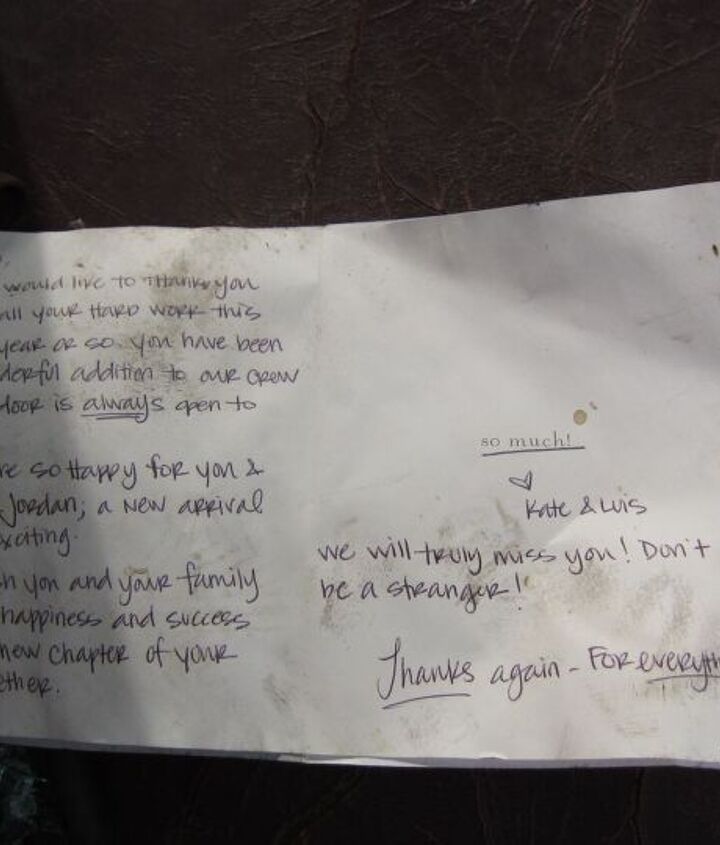 would like to thank you
all your hard work this
year or so. you have been
derful addition to our crew
door is always open to
re so happy for you &
Jordan; a new arrival
xciting.
h you and your family
happiness and success
new chapter of your
ether.
so much!
Kate & Luis
we will truly miss you! Don't
be a stranger!
Thanks again - For everyth